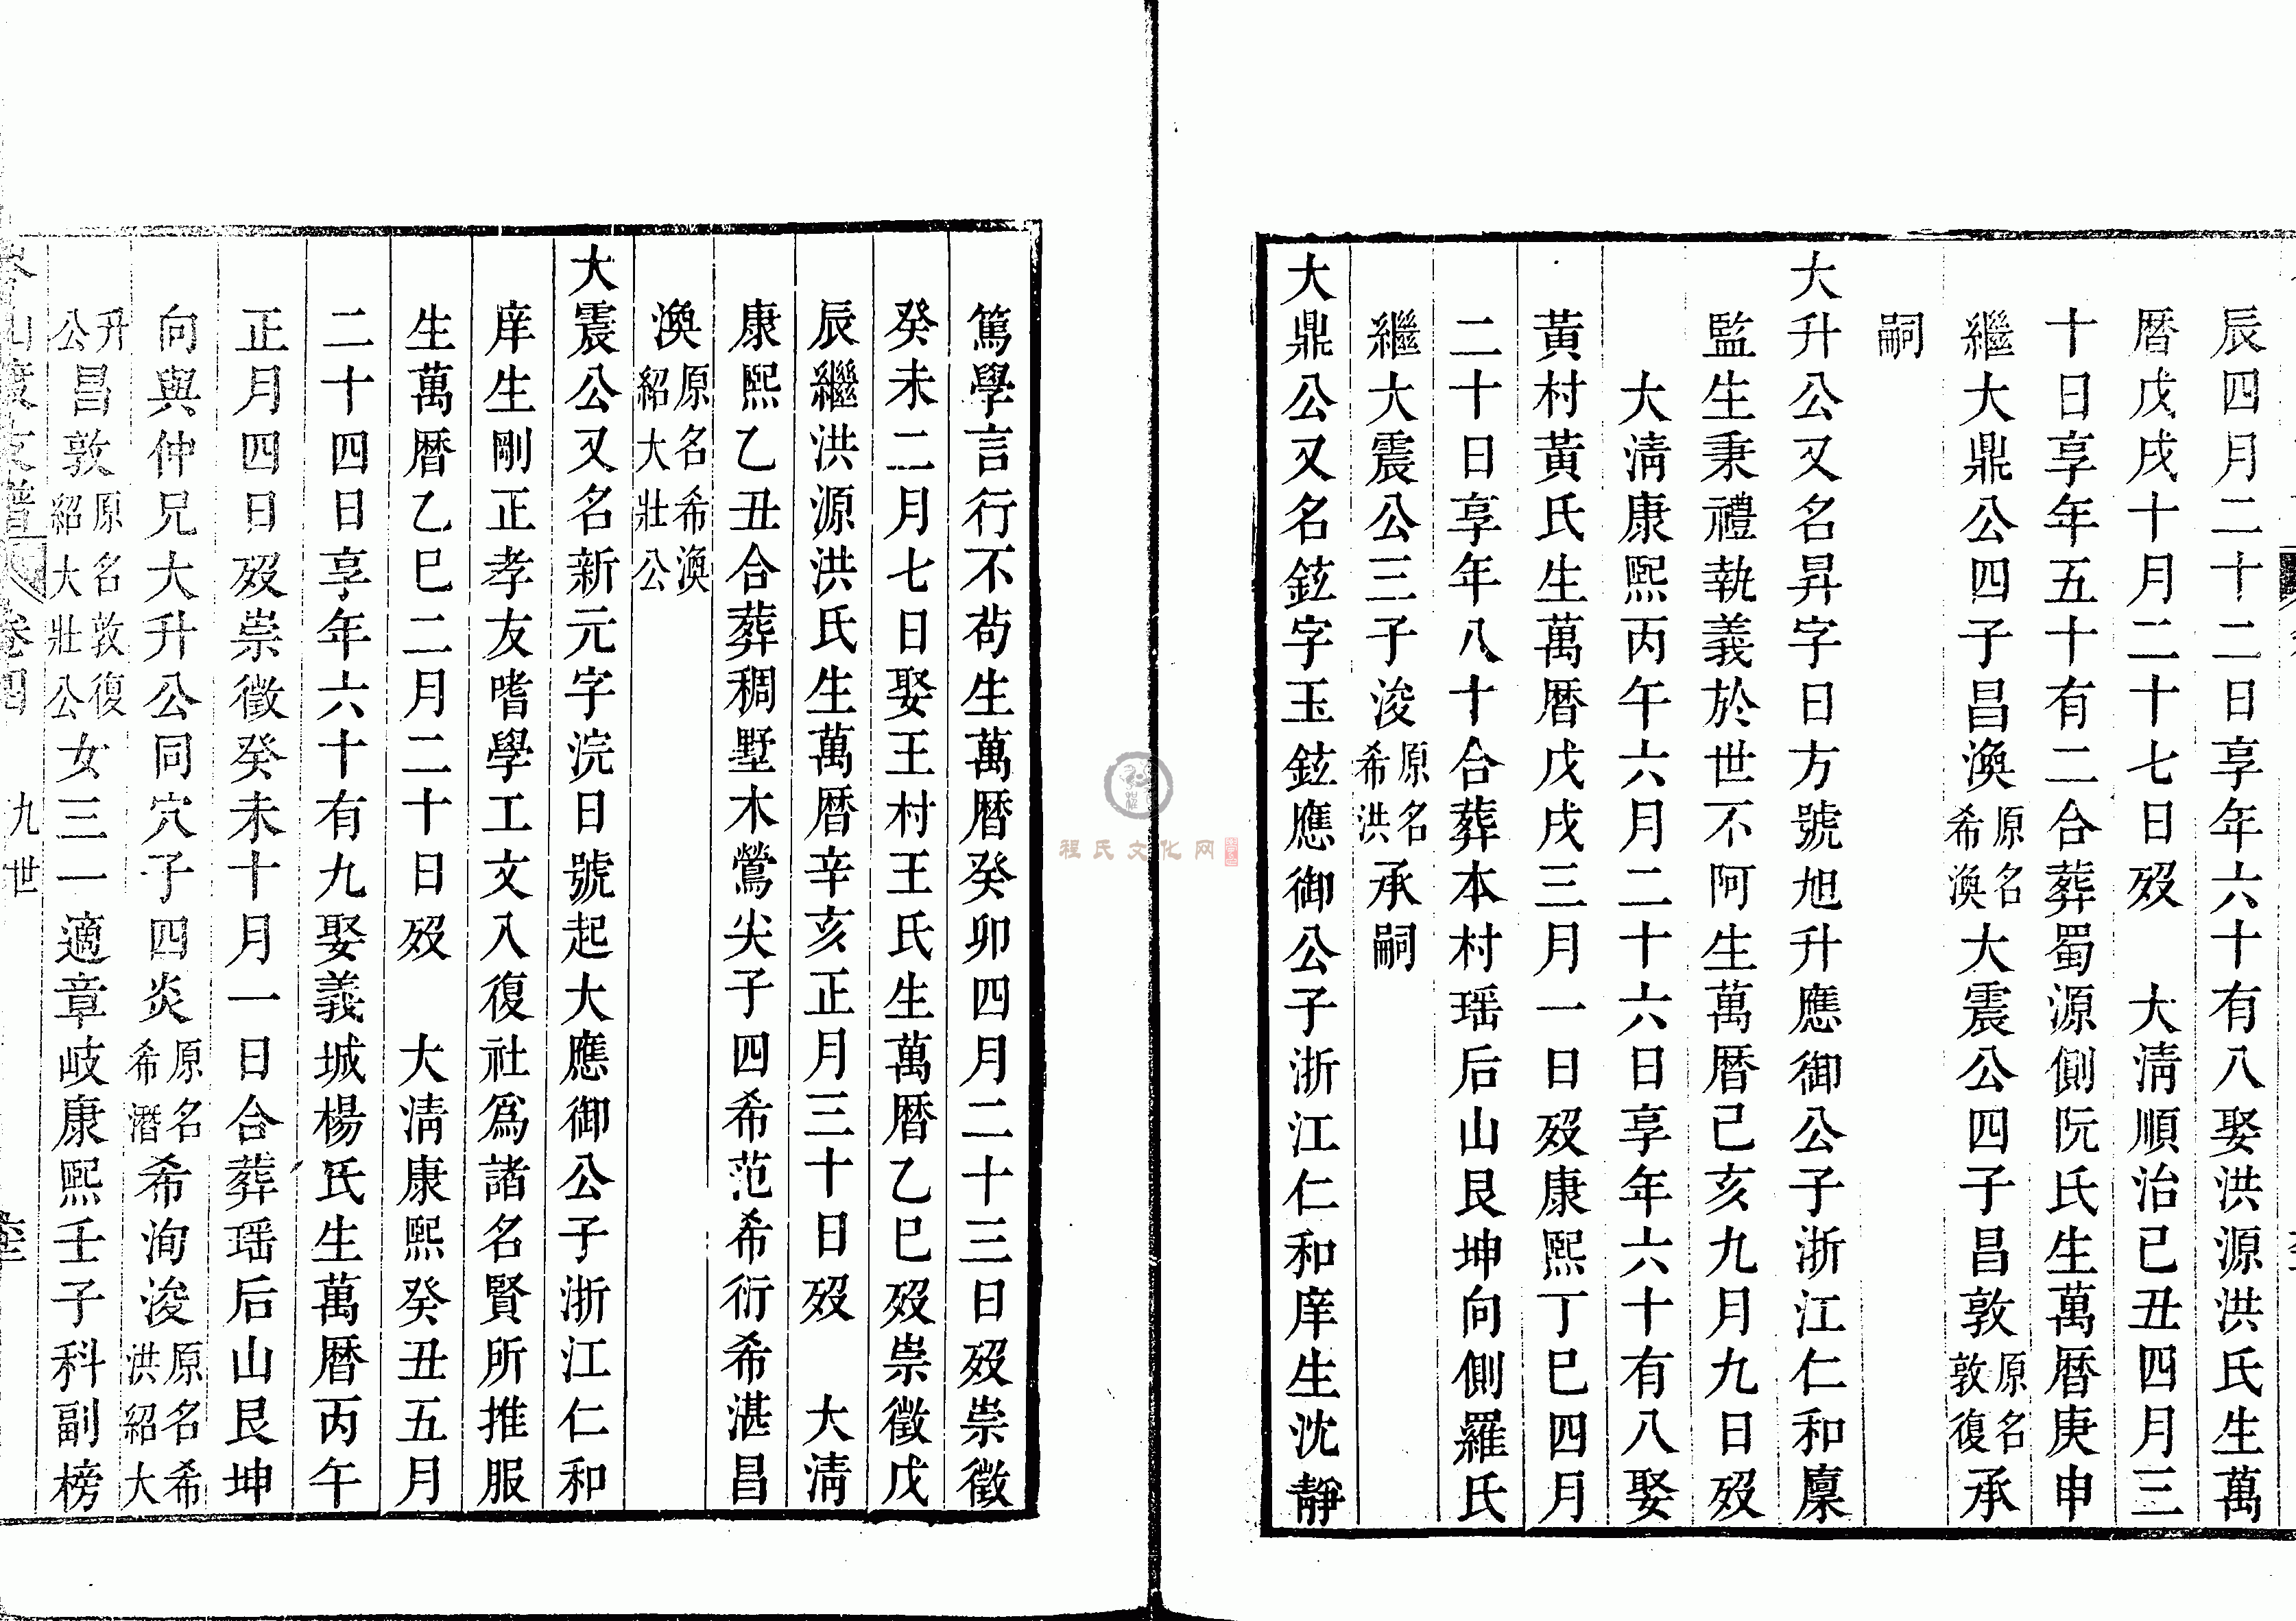 辰四月二十二日享年六十有八娶洪源洪氏生萬
曆戊戌十月二十七日歿　大清順治己丑四月三
十日享年五十有二合葬蜀源側阮氏生萬曆庚申
繼大鼎公四子昌渙原名希渙大震公四子昌敦原名敦復承
嗣
大升公又名昇字日方號旭升應御公子浙江仁和廩
監生秉禮執義於世不阿生萬曆己亥九月九日歿
大清康熙丙午六月二十六日享年六十有八娶
黃村黃氏生萬曆戊戌三月一日歿康熙丁巳四月
二十日享年八十合葬本村瑶后山艮坤向側羅氏
繼大震公三子浚原名希洪承嗣
大鼎公又名鉉字玉鉉應御公子浙江仁和庠生沈靜
篤學言行不苟生萬曆癸卯四月二十三日歿崇徵
癸未二月七日娶王村王氏生萬曆乙巳歿崇徵戊
辰繼洪源洪氏生萬曆辛亥正月三十日歿　大清
康熙乙丑合葬稠墅木鶯尖子四希范希衍希湛昌
渙原名希渙紹大壯公
大震公又名新元字浣日號起大應御公子浙江仁和
庠生剛正孝友嗜學工文入復社爲諸名賢所推服
生萬曆乙巳二月二十日歿　大清康熙癸丑五月
二十四日享年六十有九娶義城楊氏生萬曆丙午
正月四日歿崇徵癸未十月一日合葬瑶后山艮坤
向與仲兄大升公同穴子四炎原名希潛希洵浚原名希洪紹大
升公昌敦原名敦復紹大壯公女三一適章岐康熙壬子科副榜
支譜
卷四
九世
程氏文化网